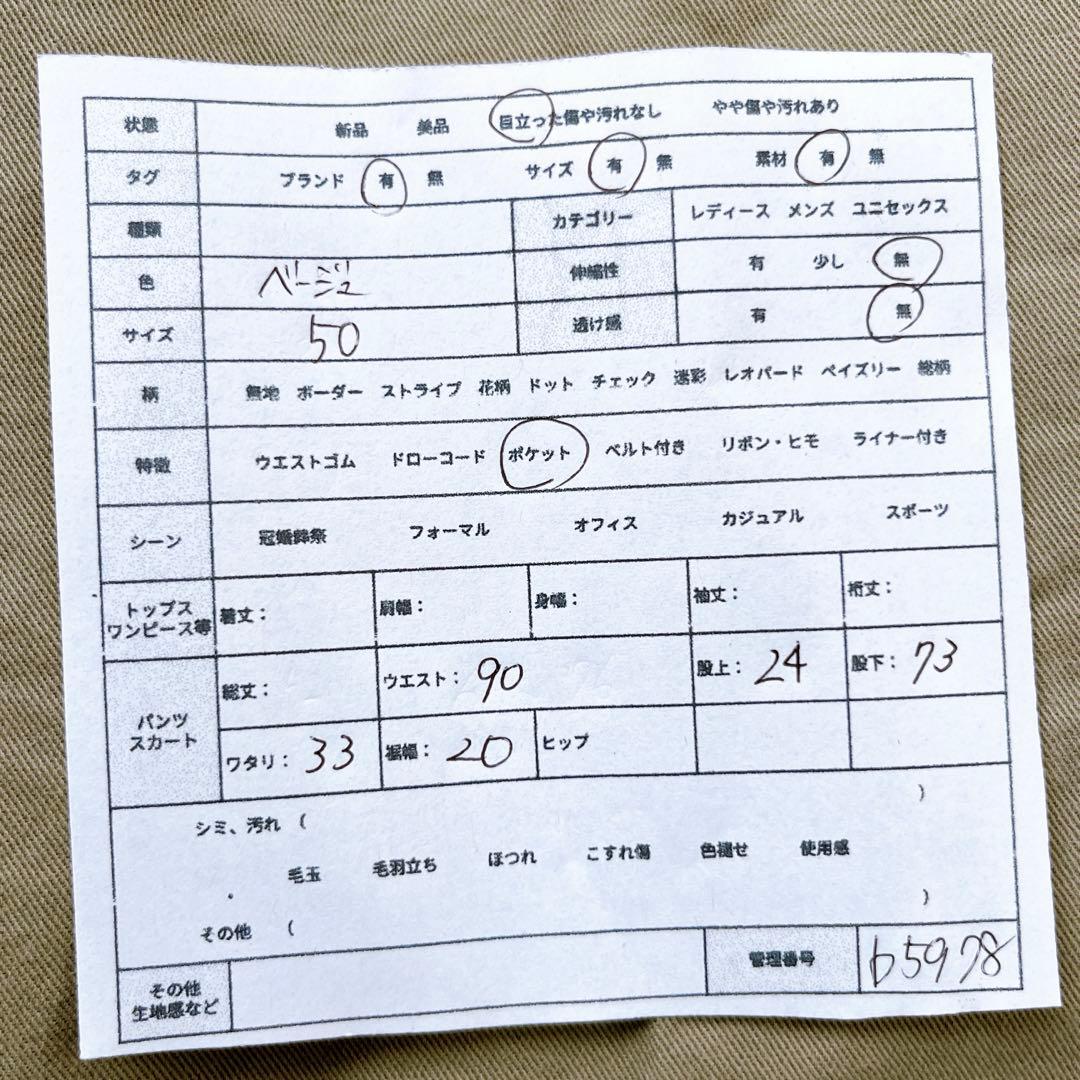 状態 新品 美品 目立った傷や汚れなし やや傷や汚れあり
タグ ブランド 有 無 サイズ 有 無 素材 有 無
種類 カテゴリー レディース メンズ ユニセックス
色 ベージュ 伸縮性 有 少し 無
サイズ 50 透け感 有 無
柄 無地 ボーダー ストライプ 花柄 ドット チェック 迷彩 レオパード ペイズリー 総柄
特徴 ウエストゴム ドローコード ポケット ベルト付き リボン・ヒモ ライナー付き
シーン 冠婚葬祭 フォーマル オフィス カジュアル スポーツ
トップス
ワンピース等
着丈: 肩幅: 身幅: 袖丈: 裄丈:
パンツ
スカート
総丈: ウエスト: 90 股上: 24 股下: 73
ワタリ: 33 裾幅: 20 ヒップ
シミ、汚れ ( )
毛玉 毛羽立ち ほつれ こすれ傷 色褪せ 使用感
その他 ( )
その他
生地感など
管理番号 b5978